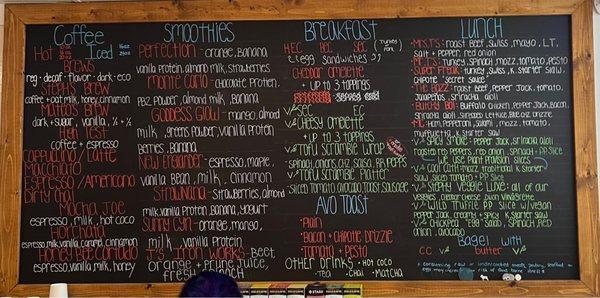 Coffee
Hot Iced
16oz
24oz
BREWS
reg - decaf - flavor - dark - eco
STEPH'S BREW
coffee + oat milk, honey, cinnamon
MATEO'S BREW
dark + sugar, vanilla, ½ + ½
HIGH TEST
coffee + espresso
CAPPUCCINO / LATTE
MACCHIATO
ESPRESSO / AMERICANO
DIRTY CHAI
MOCHA JOE
espresso, milk, hot cocoa
HORCHATA
espresso, milk, vanilla, caramel, cinnamon
HONEY BEE CORTADO
espresso, vanilla, milk, honey
SMOOTHIES
PERFECTION - orange, banana
vanilla protein, almond milk, strawberries
MONTE CARLO - chocolate protein,
PB2 powder, almond milk, banana
GODDESS GLOW - mango, almond
milk, greens powder, vanilla protein
banana
NEW ENGLANDER - espresso, maple,
vanilla bean, milk, cinnamon
STRAWNANA - Strawberries, almond
milk, vanilla protein, banana, yogurt
SUNNY GYN - orange, mango,
milk, vanilla protein
J'S IRON WORKS - Beet,
orange + prune Juice,
fresh crunch
BREAKFAST
HEC BEC SEC (Turkey / PORK)
(egg sandwiches)
CHEDDAR OMELETTE
+ up to 3 toppings
EC
CHEESY OMELETTE
+ up to 3 toppings
TOFU SCRAMBLE WRAP
spinach, onions, chz, salsa, RR peppers
TOFU SCRAMBLE PLATTER
Sliced tomato, avocado toast, sausage
AVO TOAST
- Plain
- Bacon + Chipotle Drizzle
- Tomato + Pesto
OTHER DRINKS - Hot Coco
- Tea - Chai - Matcha
LUNCH
MRS. T'S: roast beef, swiss, mayo, L.T,
Salt + pepper, red onion
MR. T'S: Turkey, spinach, mozz, tomato, pesto
SUPER FREAK: turkey, swiss, K. starter slaw,
chipotle "secret sauce"
THE TAZZ: Roast Beef, Pepper Jack, tomato,
jalapeños, sriracha aioli
BUTCHY BOI: Buffalo chicken, Pepper Jack, Bacon,
sriracha aioli
HAM, Pepperoni, Salami, mozz, tomato,
muffuletta, K. starter slaw
SPICY SMOKE - Pepper Jack, sriracha aioli
roasted red peppers, red onion, spinach - PP slice
we use plant provision slices
COOL CAT: mozz, traditional K. starter
Slaw, sliced tomato - PP slice
STEPH'S VEGGIE LUXE: all of our
WILD TRUFFLE: PP slice, spinach
Pepper Jack, creamy + spicy K starter slaw
CHICKPEA "EGG" SALAD, Spinach, red
onion, avocado
BAGEL WITH
CC BUTTER